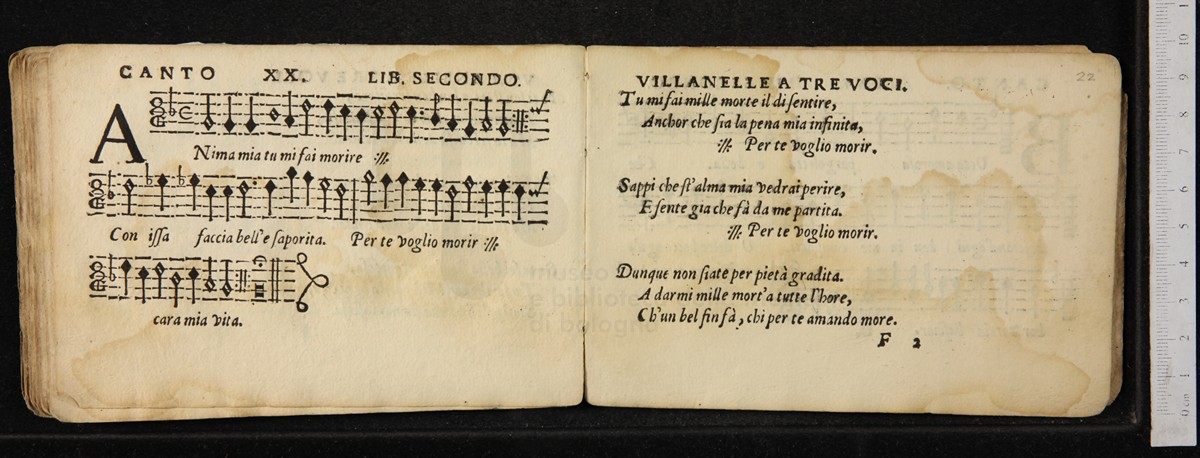 CANTO XX. LIB. SECONDO.
ANima mia tu mi fai morire :||:
Con issa faccia bell'e saporita. Per te voglio morir :||:
cara mia vita.
VILLANELLE A TRE VOCI.
22
Tu mi fai mille morte il di sentire,
Anchor che sia la pena mia infinita,
:||: Per te voglio morir.
Sappi che st'alma mia vedrai perire,
E sente gia che fà da me partita.
:||: Per te voglio morir.
Dunque non siate per pietà gradita.
A darmi mille mort'a tutte l'hore,
Ch'un bel fin fà, chi per te amando more.
F 2
museo
e bibliote
di bologna
0 cm 1 2 3 4 5 6 7 8 9 10